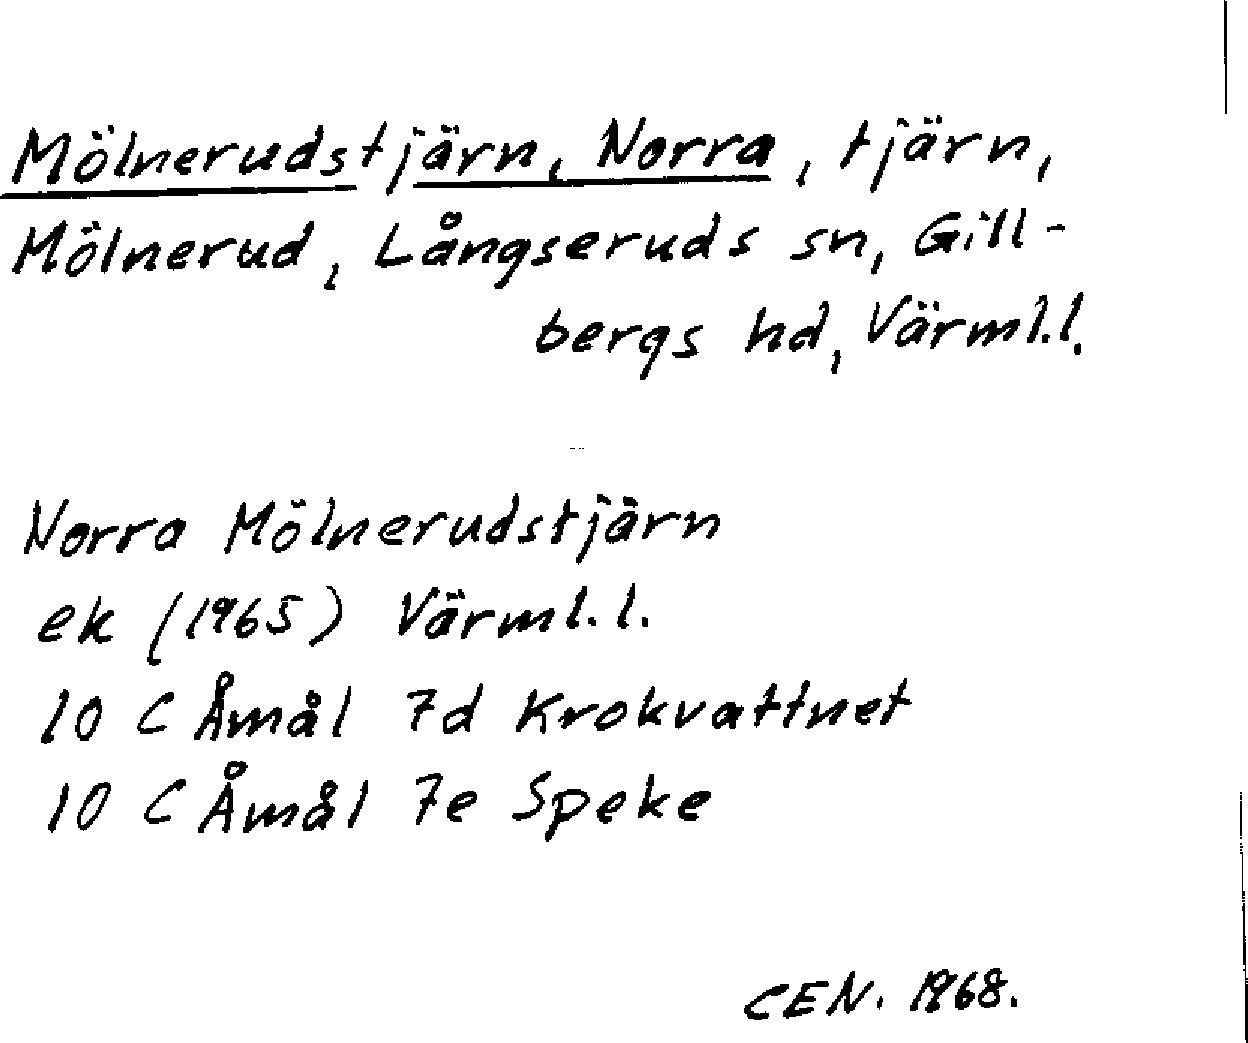 Mölnerudstjärn, Norra, tjärn,
Mölnerud, Långseruds sn, Gill-
bergs hd, Värml.l.
Norra Mölnerudstjärn
ek (1965) Värml.l.
10 C Åmål 7d Krokvattnet
10 C Åmål 7e Speke
CEN. 1968.